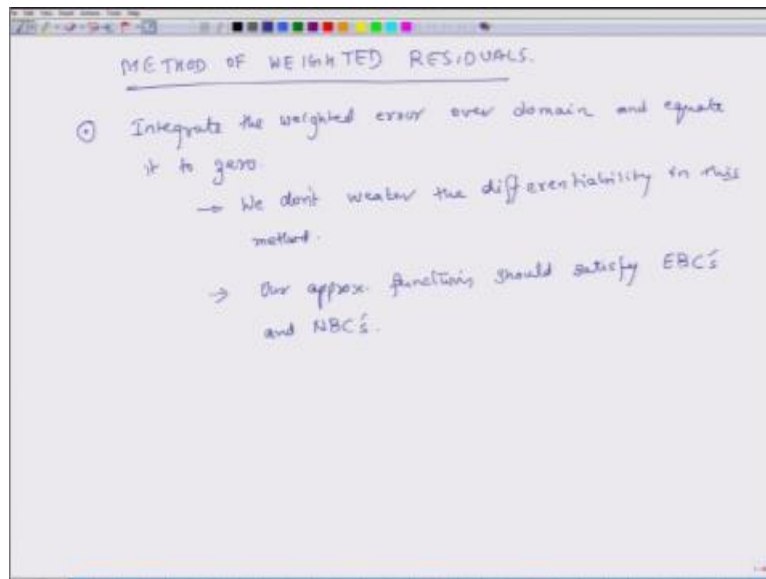 METHOD OF WEIGHTED RESIDUALS.
⊙ Integrate the weighted error over domain and equate
it to zero.
→ We don't weaken the differentiability in this
method.
→ Our approx. functions should satisfy EBC's
and NBC's.